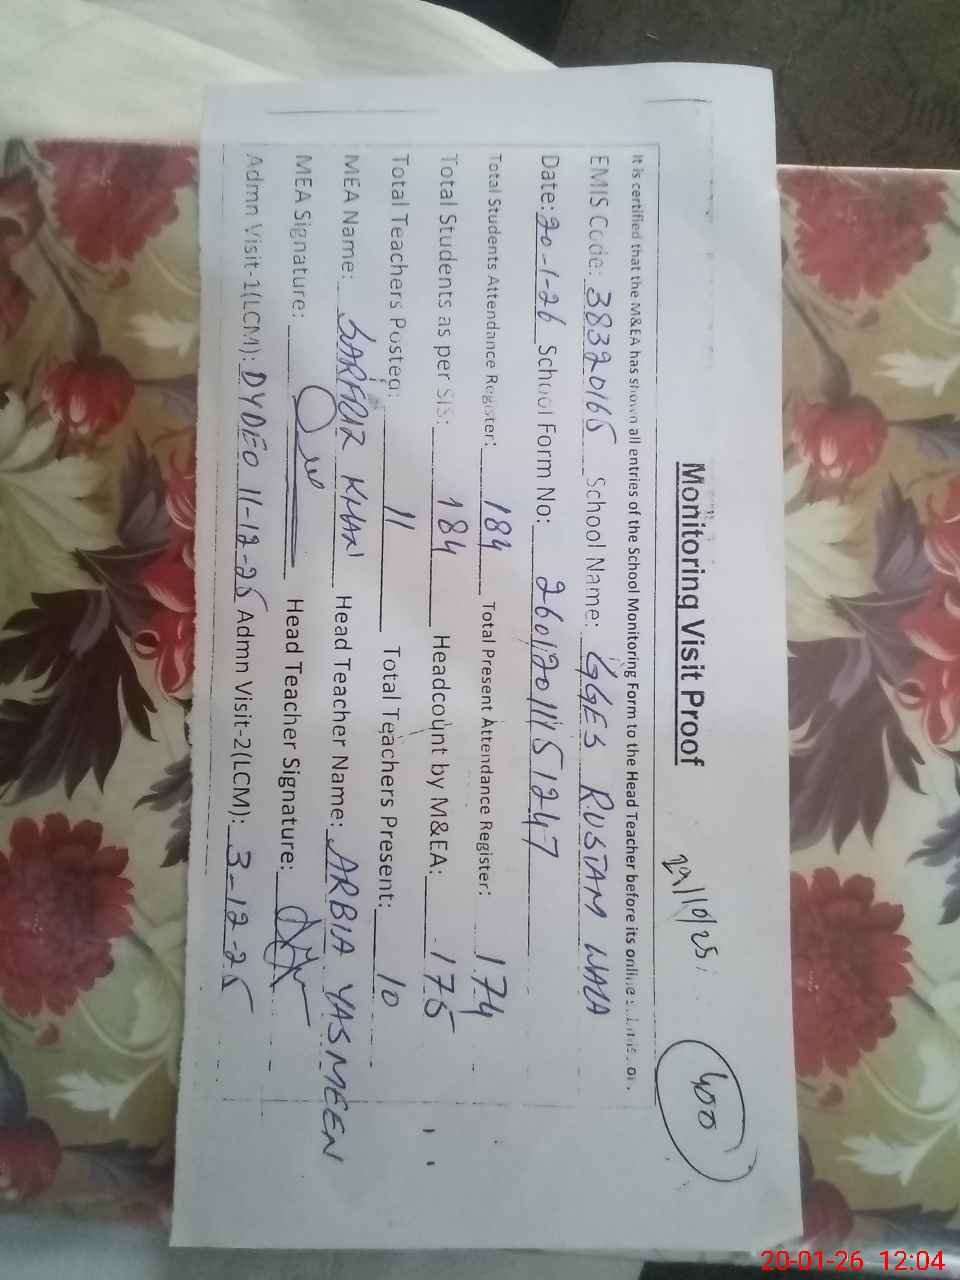 Monitoring Visit Proof
22/10/25
400
It is certified that the M&EA has shown all entries of the School Monitoring Form to the Head Teacher before its online
EMIS Code: 38320165 School Name: GGES RUSTAM WALA
Date: 20-1-26 School Form No: 26012011151247
Total Students Attendance Register: 184 Total Present Attendance Register: 174
Total Students as per SIS: 184 Headcount by M&EA: 175
Total Teachers Posted: 11 Total Teachers Present: 10
MEA Name: SARFRAZ KHAN Head Teacher Name: ARBIA YASMEEN
MEA Signature: Head Teacher Signature:
Admn Visit-1(LCM): DYDEO 11-12-25 Admn Visit-2(LCM): 3-12-25
20-01-26 12:04